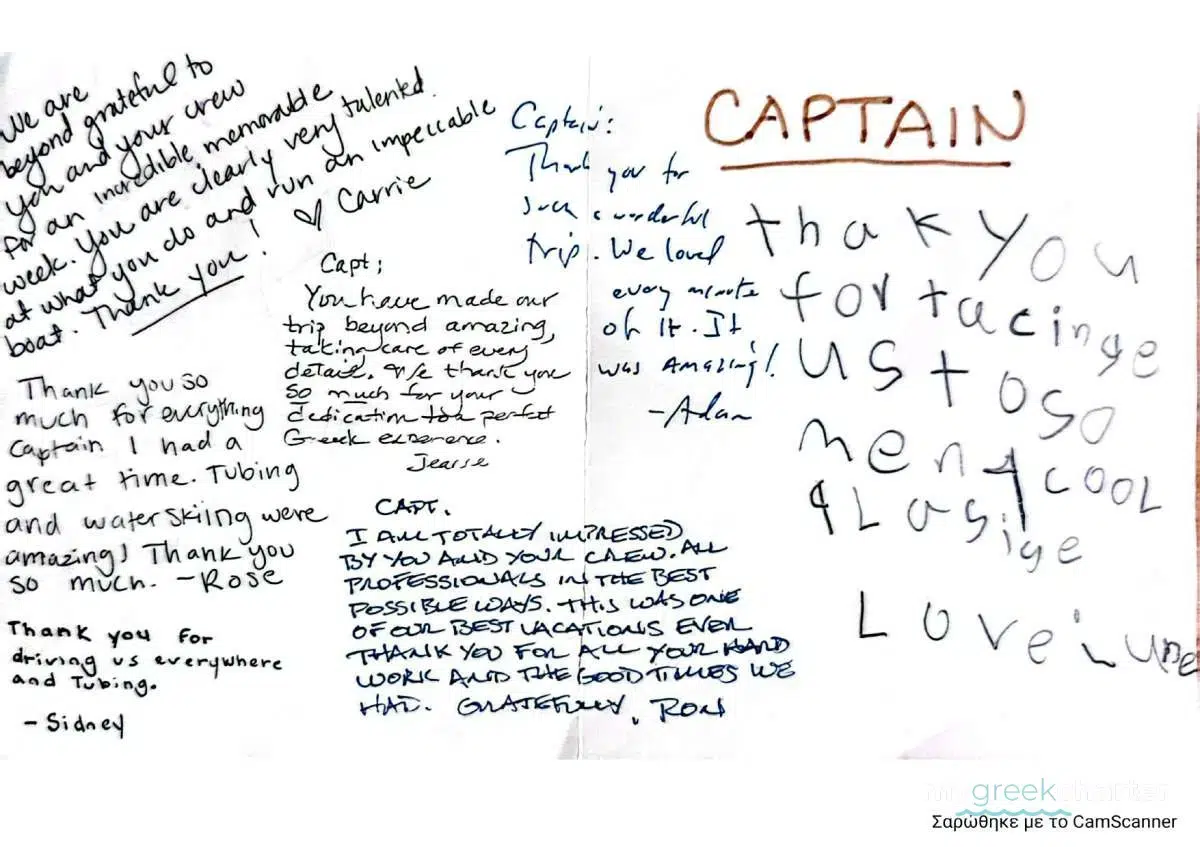 We are
beyond grateful to
you and your crew
for an incredible, memorable
week. You are clearly very talented
at what you do and run an impeccable
boat. Thank you! ♡ Carrie
Thank you so
much for everything
Captain I had a
great time. Tubing
and waterskiing were
amazing! Thank you
so much. -Rose
Thank you for
driving us everywhere
and Tubing.
- Sidney
Capt;
You have made our
trip beyond amazing,
taking care of every
detail. We thank you
so much for your
dedication to a perfect
Greek experence.
CAPT.
I AM TOTALLY IMPRESSED
BY YOU AND YOUR CREW. ALL
PROFESSIONALS IN THE BEST
POSSIBLE WAYS. THIS WAS ONE
OF OUR BEST VACATIONS EVER
THANK YOU FOR ALL YOUR HARD
WORK AND THE GOOD TIMES WE
HAD. GRATEFULLY, RON
Captain:
Thank you for
such a wonderful
trip. We loved
every minute
of it. It
was Amazing!
-Adam
CAPTAIN
thak you
for tacinge
us to so
meny cool
Love
greek
Σαρώθηκε με το CamScanner